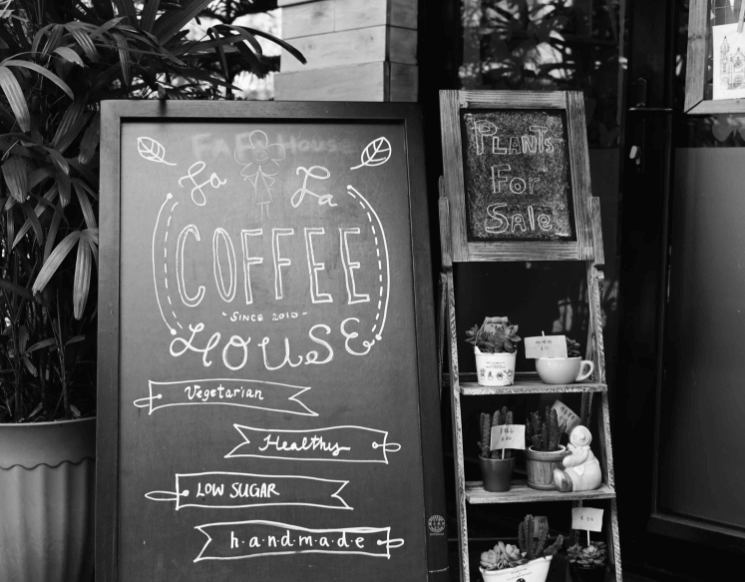 FAF House
Fa La
COFFEE
- SINCE 2010 -
HOUSE
Vegetarian
Healthy
LOW SUGAR
h·a·n·d·m·a·d·e
PLANTS
FOR
SALe